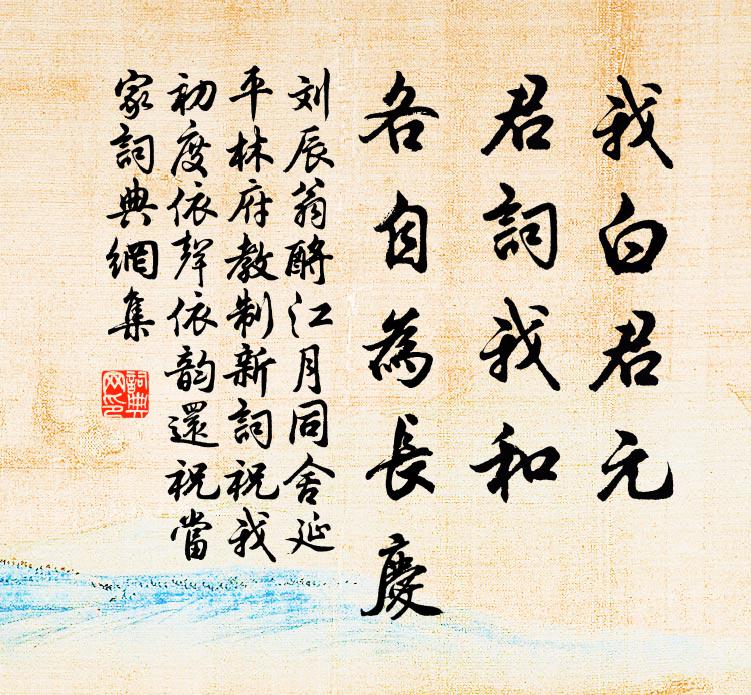 我白君元
君詞我和
各自為長慶
刘辰翁酹江月同舍延
平林府教制新詞祝我
初度依聲依韵還祝當
家詞典網集
詞典
网印